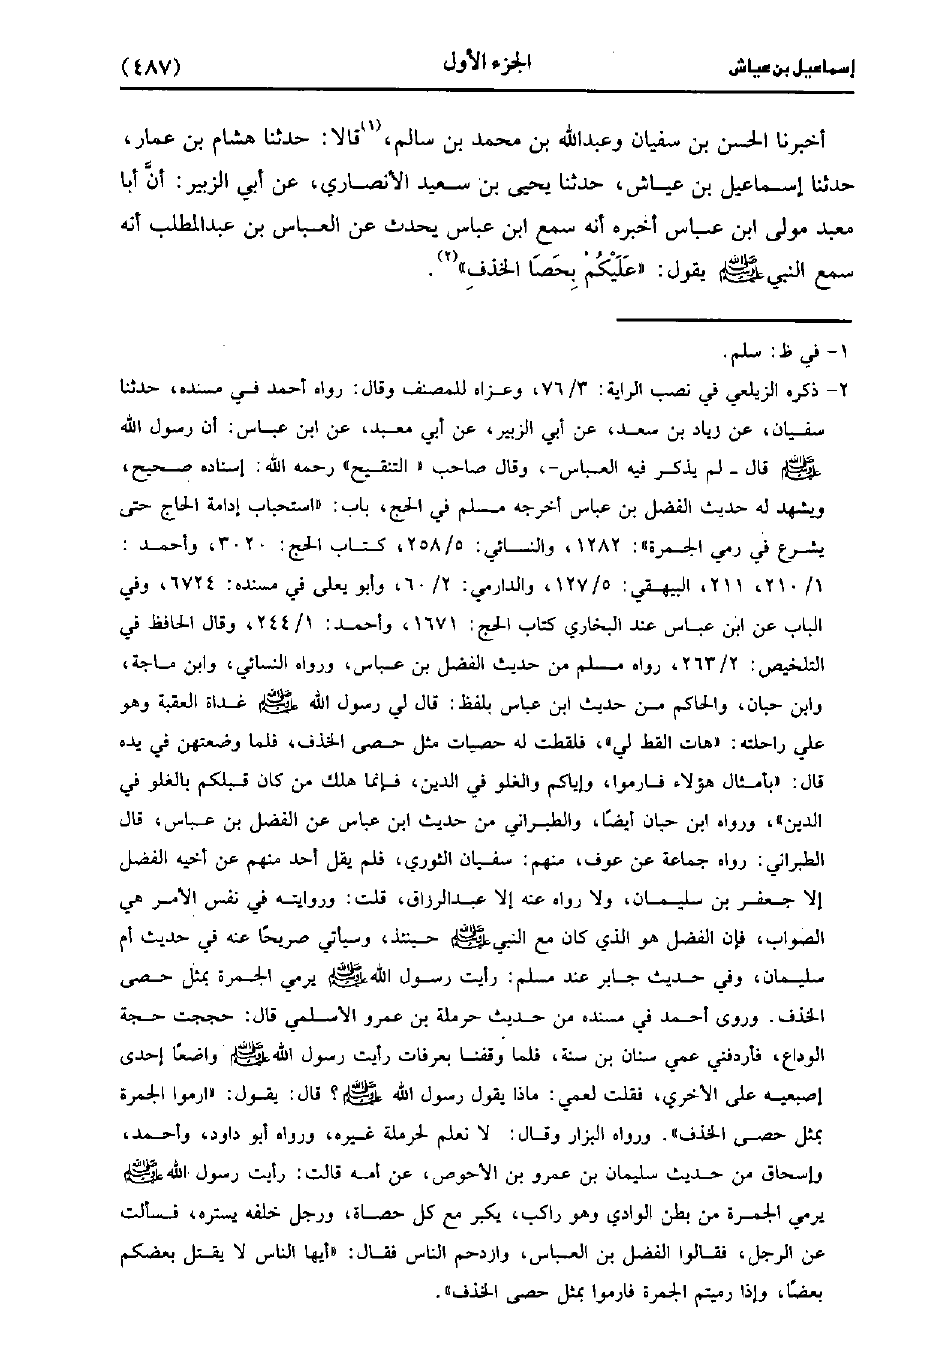 إسماعيل بن عياش الجزء الأول (٤٨٧)
أخبرنا الحسن بن سفيان وعبدالله بن محمد بن سالم،(١) قالا: حدثنا هشام بن عمار،
حدثنا إسماعيل بن عياش، حدثنا يحيى بن سعيد الأنصاري، عن أبي الزبير: أنَّ أبا
معبد مولى ابن عباس أخبره أنه سمع ابن عباس يحدث عن العباس بن عبدالمطلب أنه
سمع النبي ﷺ يقول: «عَلَيْكُمْ بِحَصَا الخذفِ»(٢).
١- في ظ: سلم.
٢- ذكره الزيلعي في نصب الراية: ٧٦/٣، وعزاه للمصنف وقال: رواه أحمد في مسنده، حدثنا
سفيان، عن زياد بن سعد، عن أبي الزبير، عن أبي معبد، عن ابن عباس: أن رسول الله
ﷺ قال - لم يذكر فيه العباس-، وقال صاحب « التنقيح» رحمه الله: إسناده صحيح،
ويشهد له حديث الفضل بن عباس أخرجه مسلم في الحج، باب: «استحباب إدامة الحاج حتى
يشرع في رمي الجمرة»: ١٢٨٢، والنسائي: ٢٥٨/٥، كتاب الحج: ٣٠٢٠، وأحمد :
٢١٠/١، ٢١١، البيهقي: ١٢٧/٥، والدارمي: ٦٠/٢، وأبو يعلى في مسنده: ٦٧٢٤، وفي
الباب عن ابن عباس عند البخاري كتاب الحج: ١٦٧١، وأحمد: ٢٤٤/١، وقال الحافظ في
التلخيص: ٢٦٣/٢، رواه مسلم من حديث الفضل بن عباس، ورواه النسائي، وابن ماجة،
وابن حبان، والحاكم من حديث ابن عباس بلفظ: قال لي رسول الله ﷺ غداة العقبة وهو
على راحلته: «هات القط لي»، فلقطت له حصيات مثل حصى الخذف، فلما وضعتهن في يده
قال: «بأمثال هؤلاء فارموا، وإياكم والغلو في الدين، فإنما هلك من كان قبلكم بالغلو في
الدين»، ورواه ابن حبان أيضًا، والطبراني من حديث ابن عباس عن الفضل بن عباس، قال
الطبراني: رواه جماعة عن عوف، منهم: سفيان الثوري، فلم يقل أحد منهم عن أخيه الفضل
إلا جعفر بن سليمان، ولا رواه عنه إلا عبدالرزاق، قلت: وروايته في نفس الأمر هي
الصواب، فإن الفضل هو الذي كان مع النبي ﷺ حينئذ، وسيأتي صريحًا عنه في حديث أم
سليمان، وفي حديث جابر عند مسلم: رأيت رسول الله ﷺ يرمي الجمرة بمثل حصى
الخذف. وروى أحمد في مسنده من حديث حرملة بن عمرو الأسلمي قال: حججت حجة
الوداع، فأردفني عمي سنان بن سنة، فلما وقفنا بعرفات رأيت رسول الله ﷺ واضعًا إحدى
إصبعيه على الأخرى، فقلت لعمي: ماذا يقول رسول الله ﷺ؟ قال: يقول: «ارموا الجمرة
بمثل حصى الخذف». ورواه البزار وقال: لا نعلم لحرملة غيره، ورواه أبو داود، وأحمد،
وإسحاق من حديث سليمان بن عمرو بن الأحوص، عن أمه قالت: رأيت رسول الله ﷺ
يرمي الجمرة من بطن الوادي وهو راكب، يكبر مع كل حصاة، ورجل خلفه يستره، فسألت
عن الرجل، فقالوا الفضل بن العباس، وازدحم الناس فقال: «أيها الناس لا يقتل بعضكم
بعضًا، وإذا رميتم الجمرة فارموا بمثل حصى الخذف».